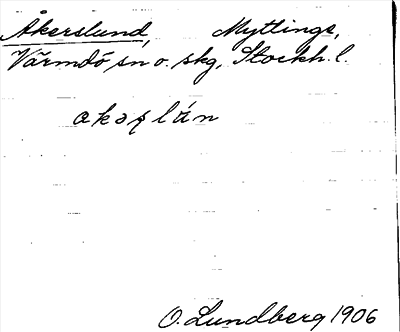 Åkerslund, Myttinge,
Värmdö sn o. skg, Stockh. l.
akəʂlún
O. Lundberg 1906